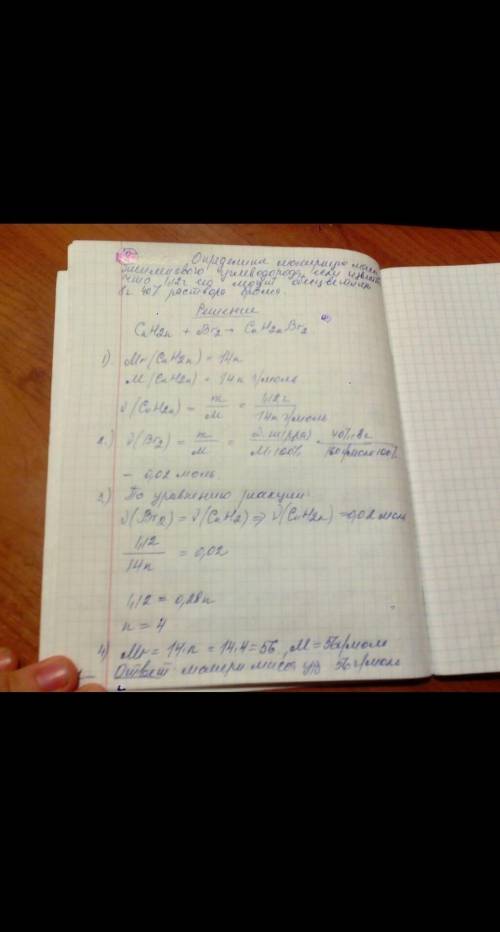 Определите молярную массу
этиленового углеводорода, если известно
что 1,12г его может обесцветить
8г 40% раствора брома.
Решение
CnH2n + Br2 → CnH2nBr2
1) Mr(CnH2n) = 14n
M(CnH2n) = 14n г/моль
ν(CnH2n) = m/M = 1,12г/14n г/моль
2.) ν(Br2) = m/M = ω·m(р-ра)/M·100% = 40%·8г/160г/моль·100%
= 0,02 моль
3) По уравнению реакции:
ν(Br2) = ν(CnH2) => ν(CnH2n) = 0,02 моль
1,12/14n = 0,02
1,12 = 0,28n
n = 4
4) Mr = 14·n = 14·4 = 56, M = 56г/моль
Ответ: масса у/в 56г/моль